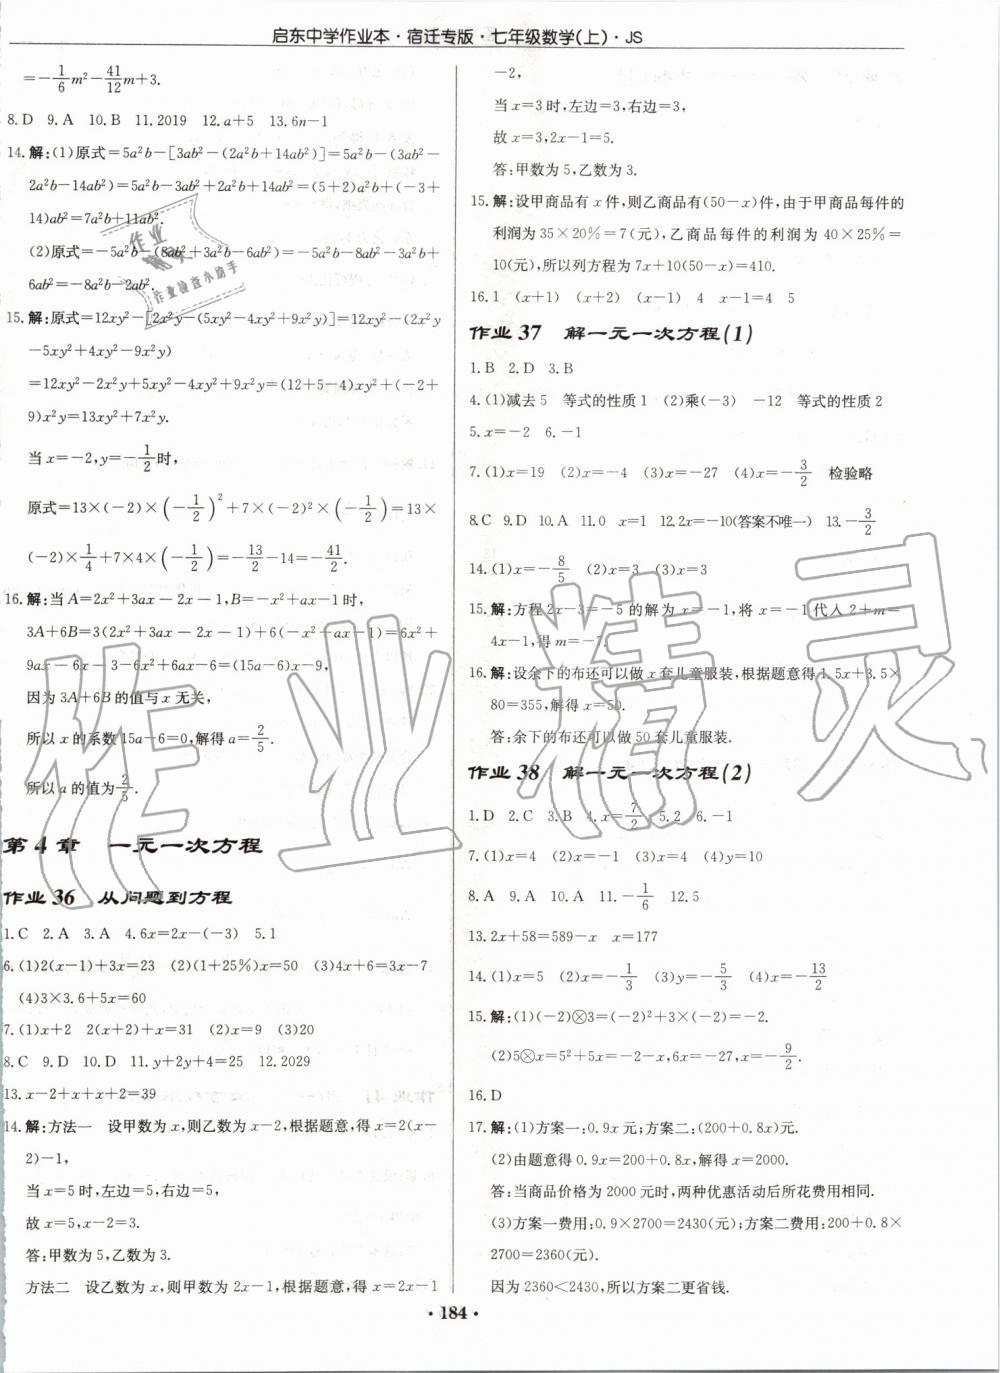 启东中学作业本·宿迁专版·七年级数学(上)·JS
=-1/6m²-41/12m+3.
8.D 9.A 10.B 11.2019 12.a+5 13.6n-1
14.解:(1)原式=5a²b-[3ab²-(2a²b+14ab²)]=5a²b-(3ab²-
2a²b-14ab²)=5a²b-3ab²+2a²b+14ab²=(5+2)a²b+(-3+
14)ab²=7a²b+11ab².
(2)原式=-5a²b-(8ab²+3a²b-6ab²)=-5a²b-8ab²-3a²b+
6ab²=-8a²b-2ab².
15.解:原式=12xy²-[2x²y-(5xy²-4xy²+9x²y)]=12xy²-(2x²y
-5xy²+4xy²-9x²y)
=12xy²-2x²y+5xy²-4xy²+9x²y=(12+5-4)xy²+(-2+
9)x²y=13xy²+7x²y.
当x=-2,y=-1/2时,
原式=13×(-2)×(-1/2)²+7×(-2)²×(-1/2)=13×
(-2)×1/4+7×4×(-1/2)=-13/2-14=-41/2.
16.解:当A=2x²+3ax-2x-1,B=-x²+ax-1时,
3A+6B=3(2x²+3ax-2x-1)+6(-x²+ax-1)=6x²+
9ax-6x-3-6x²+6ax-6=(15a-6)x-9,
因为3A+6B的值与x无关,
所以x的系数15a-6=0,解得a=2/5.
所以a的值为2/5.
第4章 一元一次方程
作业36 从问题到方程
1.C 2.A 3.A 4.6x=2x-(-3) 5.1
6.(1)2(x-1)+3x=23 (2)(1+25%)x=50 (3)4x+6=3x-7
(4)3×3.6+5x=60
7.(1)x+2 2(x+2)+x=31 (2)x=9 (3)20
8.C 9.D 10.D 11.y+2y+4=25 12.2029
13.x-2+x+x+2=39
14.解:方法一 设甲数为x,则乙数为x-2,根据题意,得x=2(x-
2)-1,
当x=5时,左边=5,右边=5,
故x=5,x-2=3.
答:甲数为5,乙数为3.
方法二 设乙数为x,则甲数为2x-1,根据题意,得x=2x-1
-2,
当x=3时,左边=3,右边=3,
故x=3,2x-1=5.
答:甲数为5,乙数为3.
15.解:设甲商品有x件,则乙商品有(50-x)件,由于甲商品每件的
利润为35×20%=7(元),乙商品每件的利润为40×25%=
10(元),所以列方程为7x+10(50-x)=410.
16.1 (x+1) (x+2) (x-1) 4 x-1=4 5
作业37 解一元一次方程(1)
1.B 2.D 3.B
4.(1)减去5 等式的性质1 (2)乘(-3) -12 等式的性质2
5.x=-2 6.-1
7.(1)x=19 (2)x=-4 (3)x=-27 (4)x=-3/2 检验略
8.C 9.D 10.A 11.0 x=1 12.2x=-10(答案不唯一) 13.-3/2
14.(1)x=-8/5 (2)x=3 (3)x=3
15.解:方程2x-3=-5的解为x=-1,将x=-1代入2+m=
4x-1,得m=-7.
16.解:设余下的布还可以做x套儿童服装,根据题意得1.5x+3.5×
80=355,解得x=50.
答:余下的布还可以做50套儿童服装.
作业38 解一元一次方程(2)
1.D 2.C 3.B 4.x=7/2 5.2 6.-1
7.(1)x=1 (2)x=3 (3)x=4 (4)y=10
8.A 9.A 10.A 11.-1/6 12.5
13.2x+58=589-x x=177
14.(1)x=5 (2)x=-1/3 (3)y=-5/3 (4)x=-13/2
15.解:(1)(-2)⊗3=(-2)²+3×(-2)=-2.
(2)5⊗x=5²+5x=-2-x,6x=-27,x=-9/2.
16.D
17.解:(1)方案一:0.9x元;方案二:(200+0.8x)元.
(2)由题意得0.9x=200+0.8x,解得x=2000.
答:当商品价格为2000元时,两种优惠活动后所花费用相同.
(3)方案一费用:0.9×2700=2430(元);方案二费用:200+0.8×
2700=2360(元).
因为2360<2430,所以方案二更省钱.
·184·
作业精灵
作业精灵
作业检查小助手